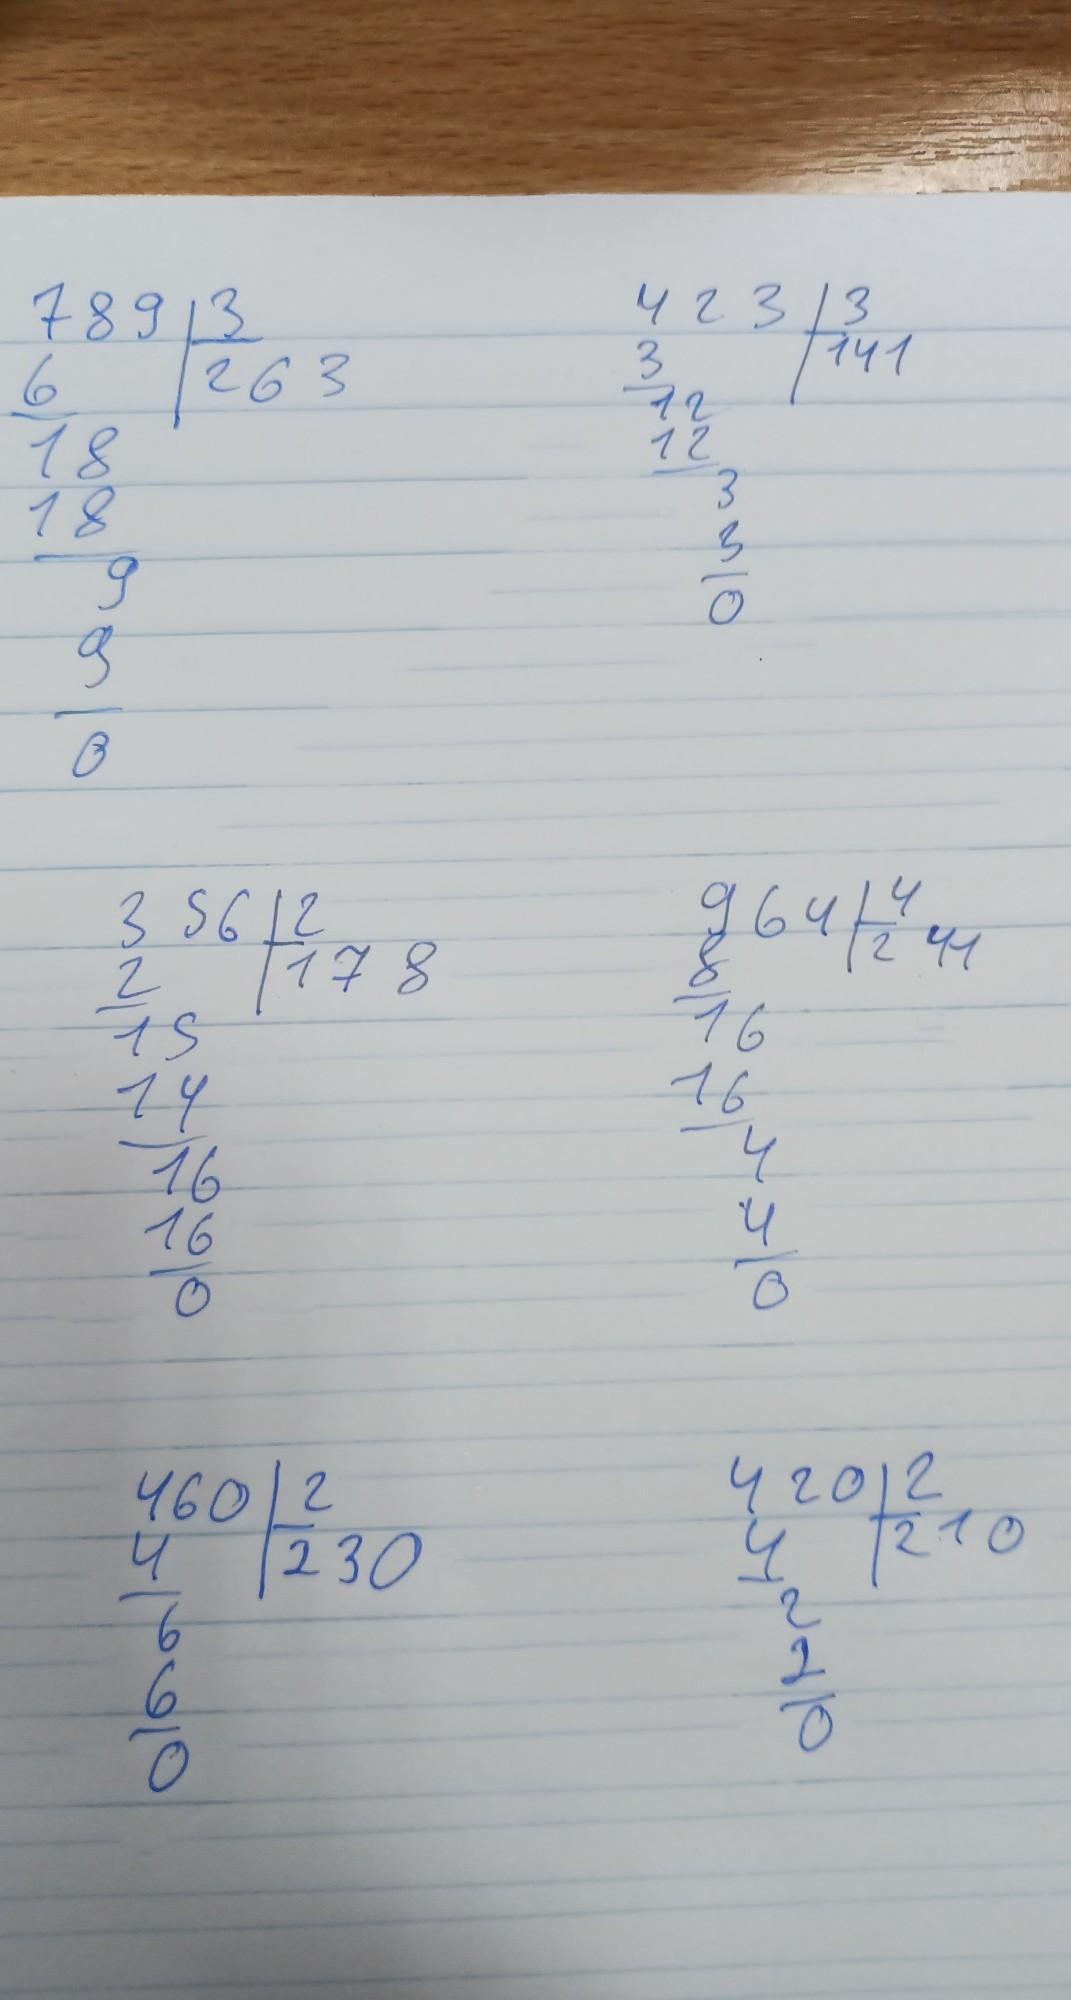 789 3
6 263
18
18
9
9
0
423 3
3 141
12
12
3
3
0
356 2
2 178
15
14
16
16
0
964 4
8 241
16
16
4
4
0
460 2
4 230
6
6
0
420 2
4 210
2
2
0